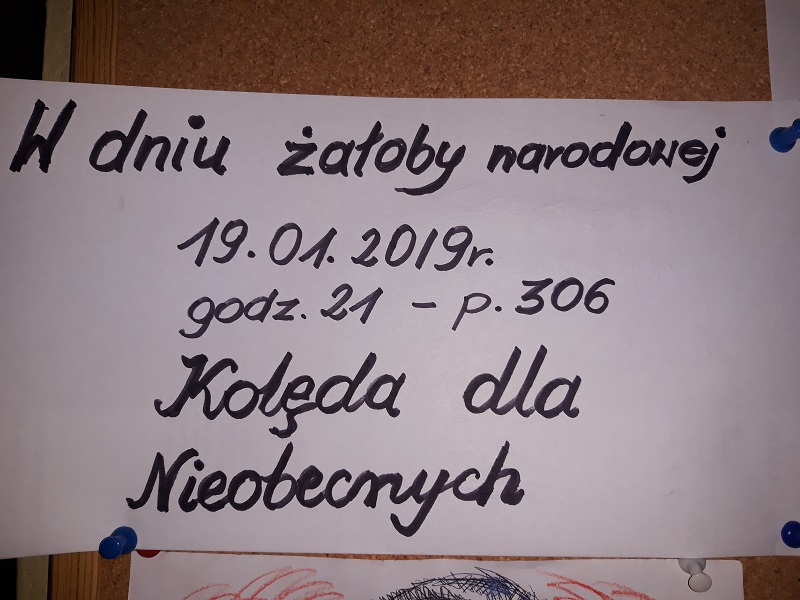 W dniu żałoby narodowej
19.01.2019r.
godz. 21 - p. 306
Kolęda dla
Nieobecnych